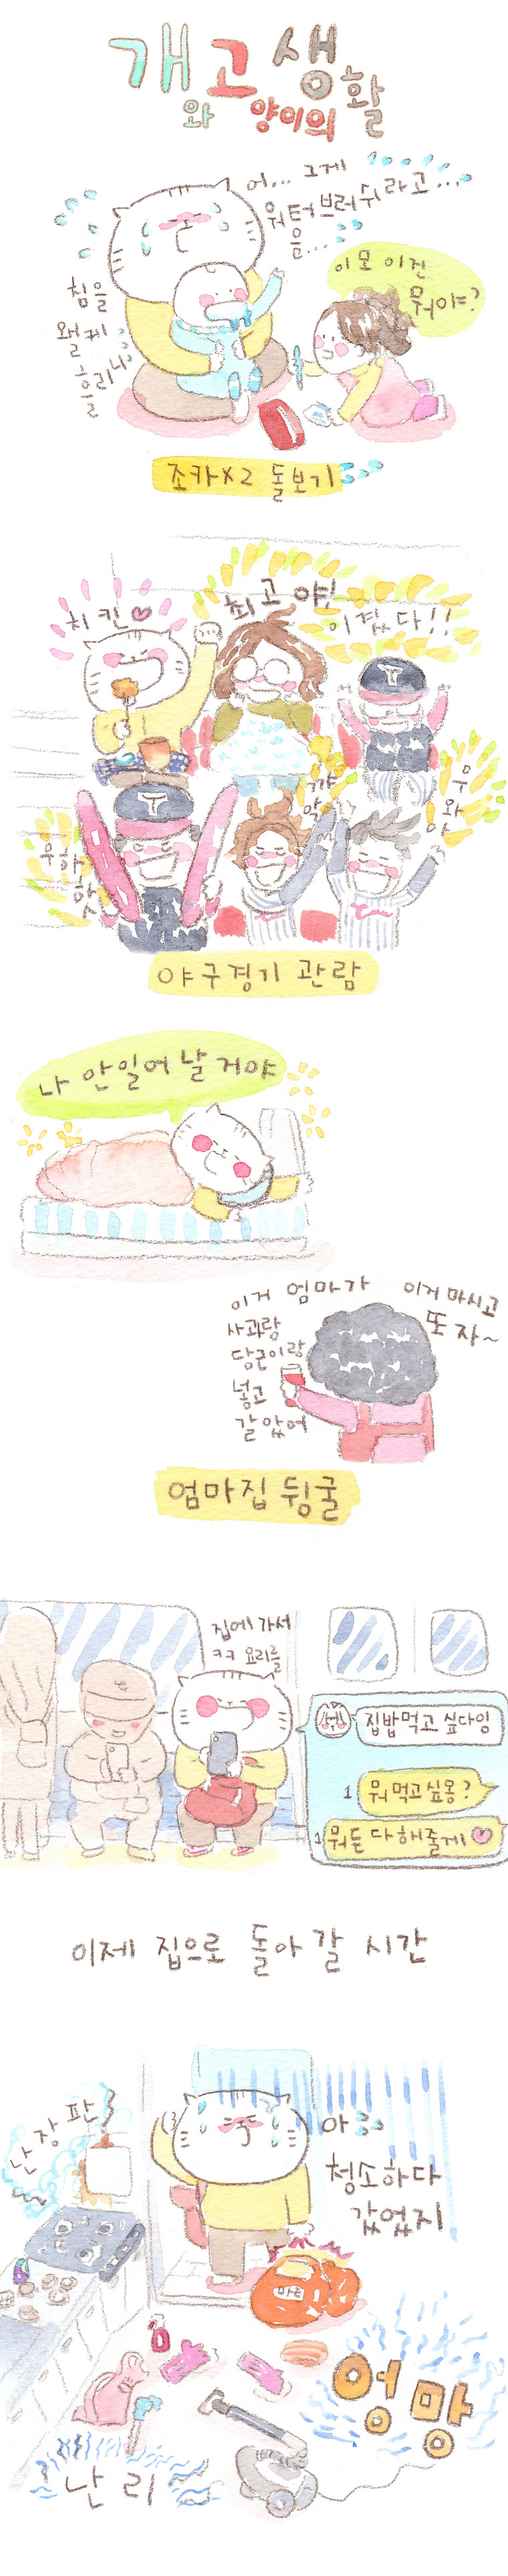 개와 고양이의 생활
어... 그게
워터브러쉬라고...
음...
이모 이건
뭐야?
침을
왤케
흘리니
조카x2 돌보기
치킨♥
최고야!
이겼다!!
T
꺄악
우와아
T
우하핫
야구경기 관람
나 안일어날거야
이거 엄마가
사과랑
당근이랑
넣고
갈았어
이거 마시고
또 자~
엄마집 뒹굴
집에 가서
ㅋㅋ 요리를
집밥먹고 싶다잉
1 뭐먹고싶옹?
1 뭐든 다 해줄게♥
이제 집으로 돌아갈 시간
난장판
아
청소하다
갔었지
마트
엉망
난리